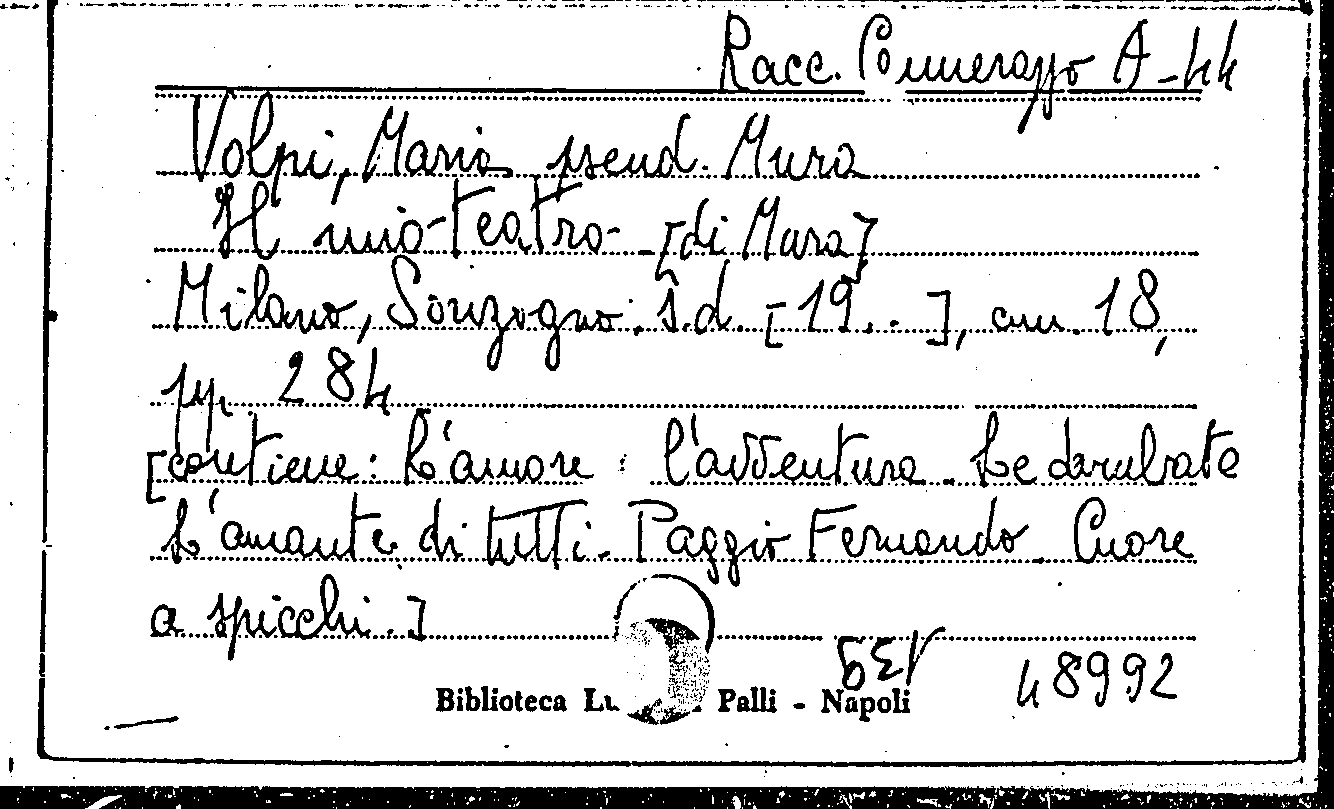 Racc. Pomerajo A-44
Volpi, Maria pseud. Mura
Il mio teatro [di Mura]
Milano, Sonzogno. s.d. [19..], cm. 18,
pp. 284
[contiene: L'amore : l'avventura. Le derubate
L'amante di tutti. Paggio Fernando. Cuore
a spicchi.]
48992
Biblioteca Lu Palli - Napoli